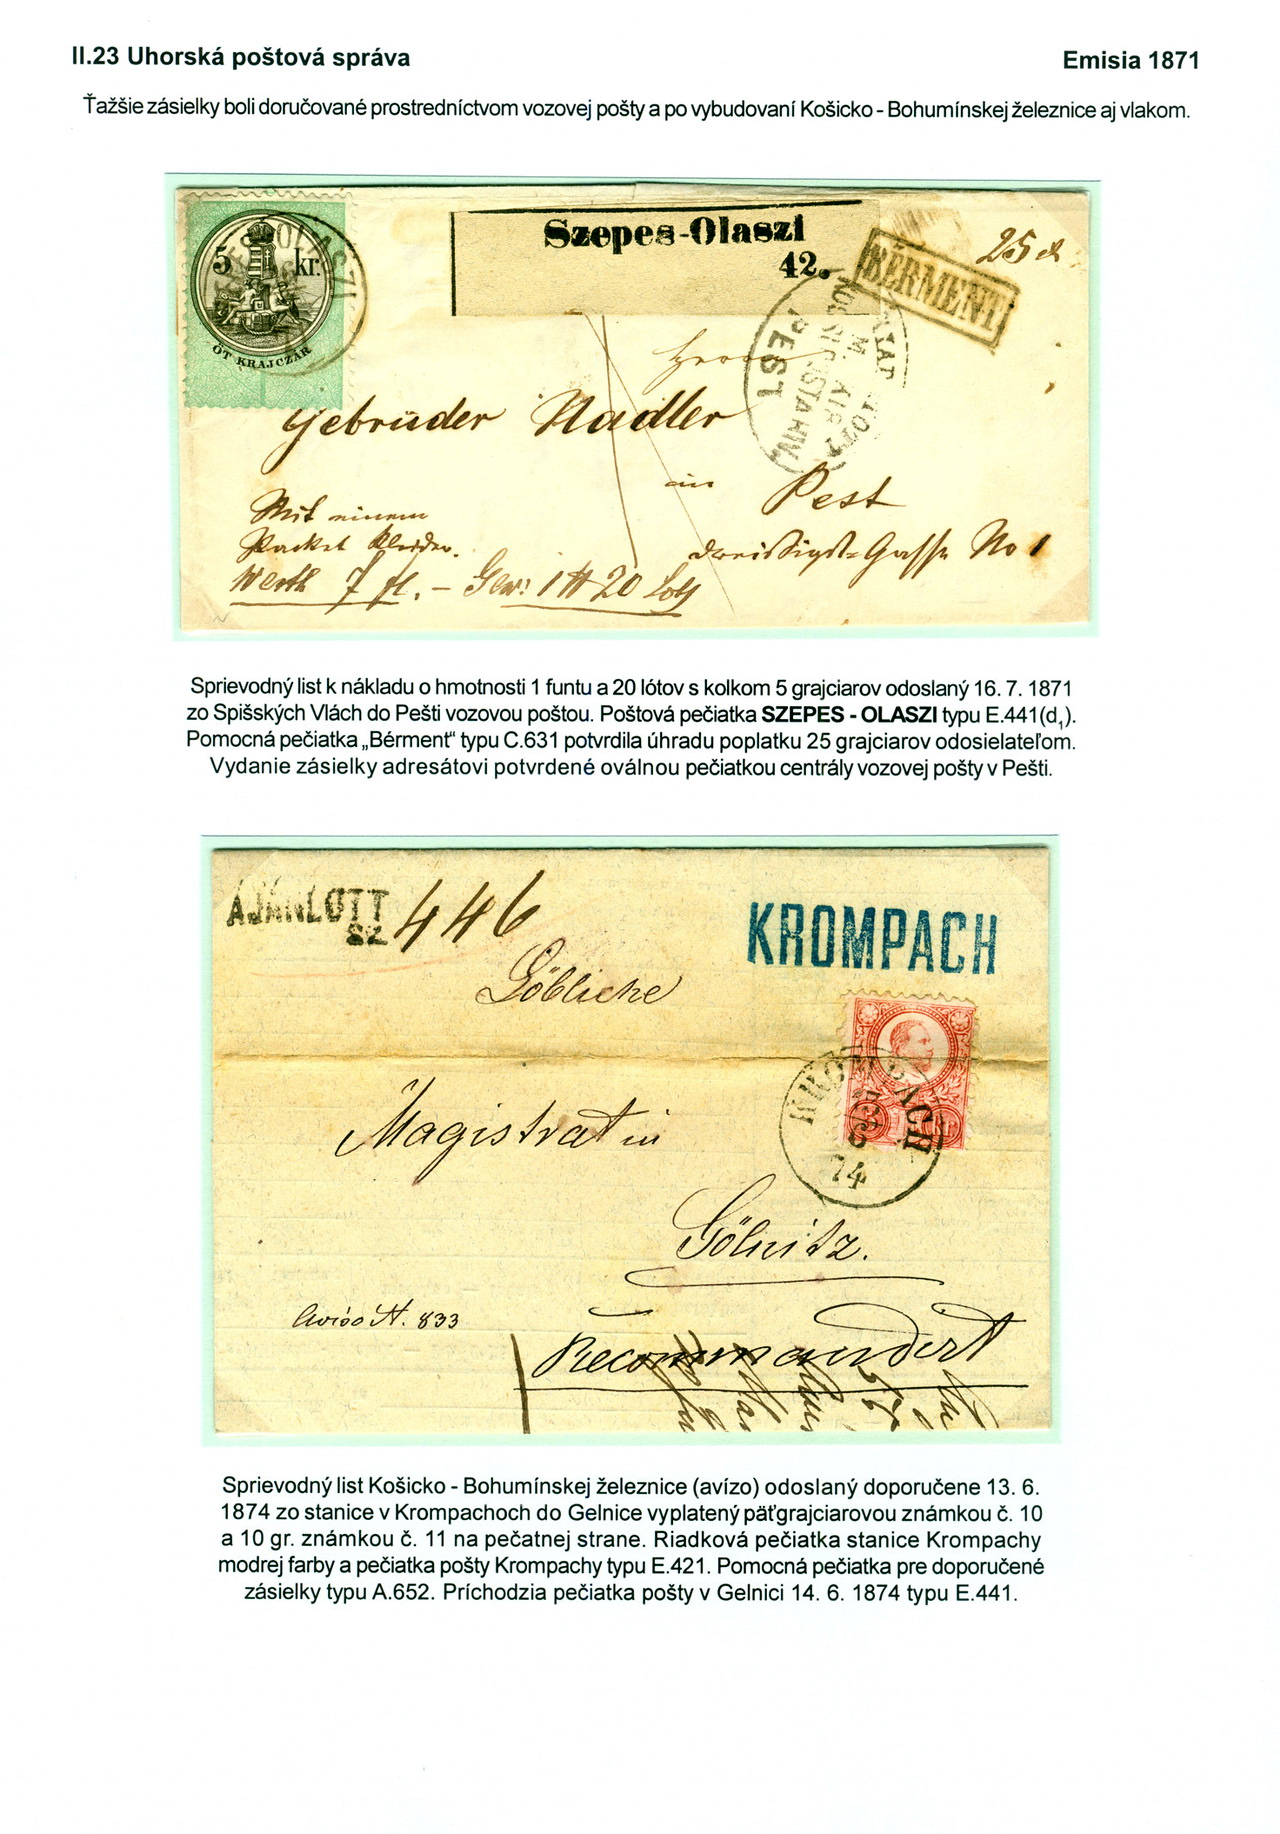 II.23 Uhorská poštová správa
Emisia 1871
Ťažšie zásielky boli doručované prostredníctvom vozovej pošty a po vybudovaní Košicko - Bohumínskej železnice aj vlakom.
5 kr.
ÖT KRAJCZÁR
Szepes-Olaszi
42.
BÉRMENT
25 x
PEST
Herrn
Gebrüder Nadler
in Pest
Mit einem
Packet Kleider.
dreißigst=Gasse No 1
Werth 7 fl. – Gew: 1 ℔ 20 Loth
Sprievodný list k nákladu o hmotnosti 1 funtu a 20 lótov s kolkom 5 grajciarov odoslaný 16. 7. 1871
zo Spišských Vlách do Pešti vozovou poštou. Poštová pečiatka SZEPES - OLASZI typu E.441(d₁).
Pomocná pečiatka „Bérment“ typu C.631 potvrdila úhradu poplatku 25 grajciarov odosielateľom.
Vydanie zásielky adresátovi potvrdené oválnou pečiatkou centrály vozovej pošty v Pešti.
AJÁNLOTT
SZ 446
KROMPACH
Löbliche
KROMPACH
6
74
Magistrat in
Gölnitz.
Aviso N. 833
Recommandert
Sprievodný list Košicko - Bohumínskej železnice (avízo) odoslaný doporučene 13. 6.
1874 zo stanice v Krompachoch do Gelnice vyplatený päťgrajciarovou známkou č. 10
a 10 gr. známkou č. 11 na pečatnej strane. Riadková pečiatka stanice Krompachy
modrej farby a pečiatka pošty Krompachy typu E.421. Pomocná pečiatka pre doporučené
zásielky typu A.652. Príchodzia pečiatka pošty v Gelnici 14. 6. 1874 typu E.441.